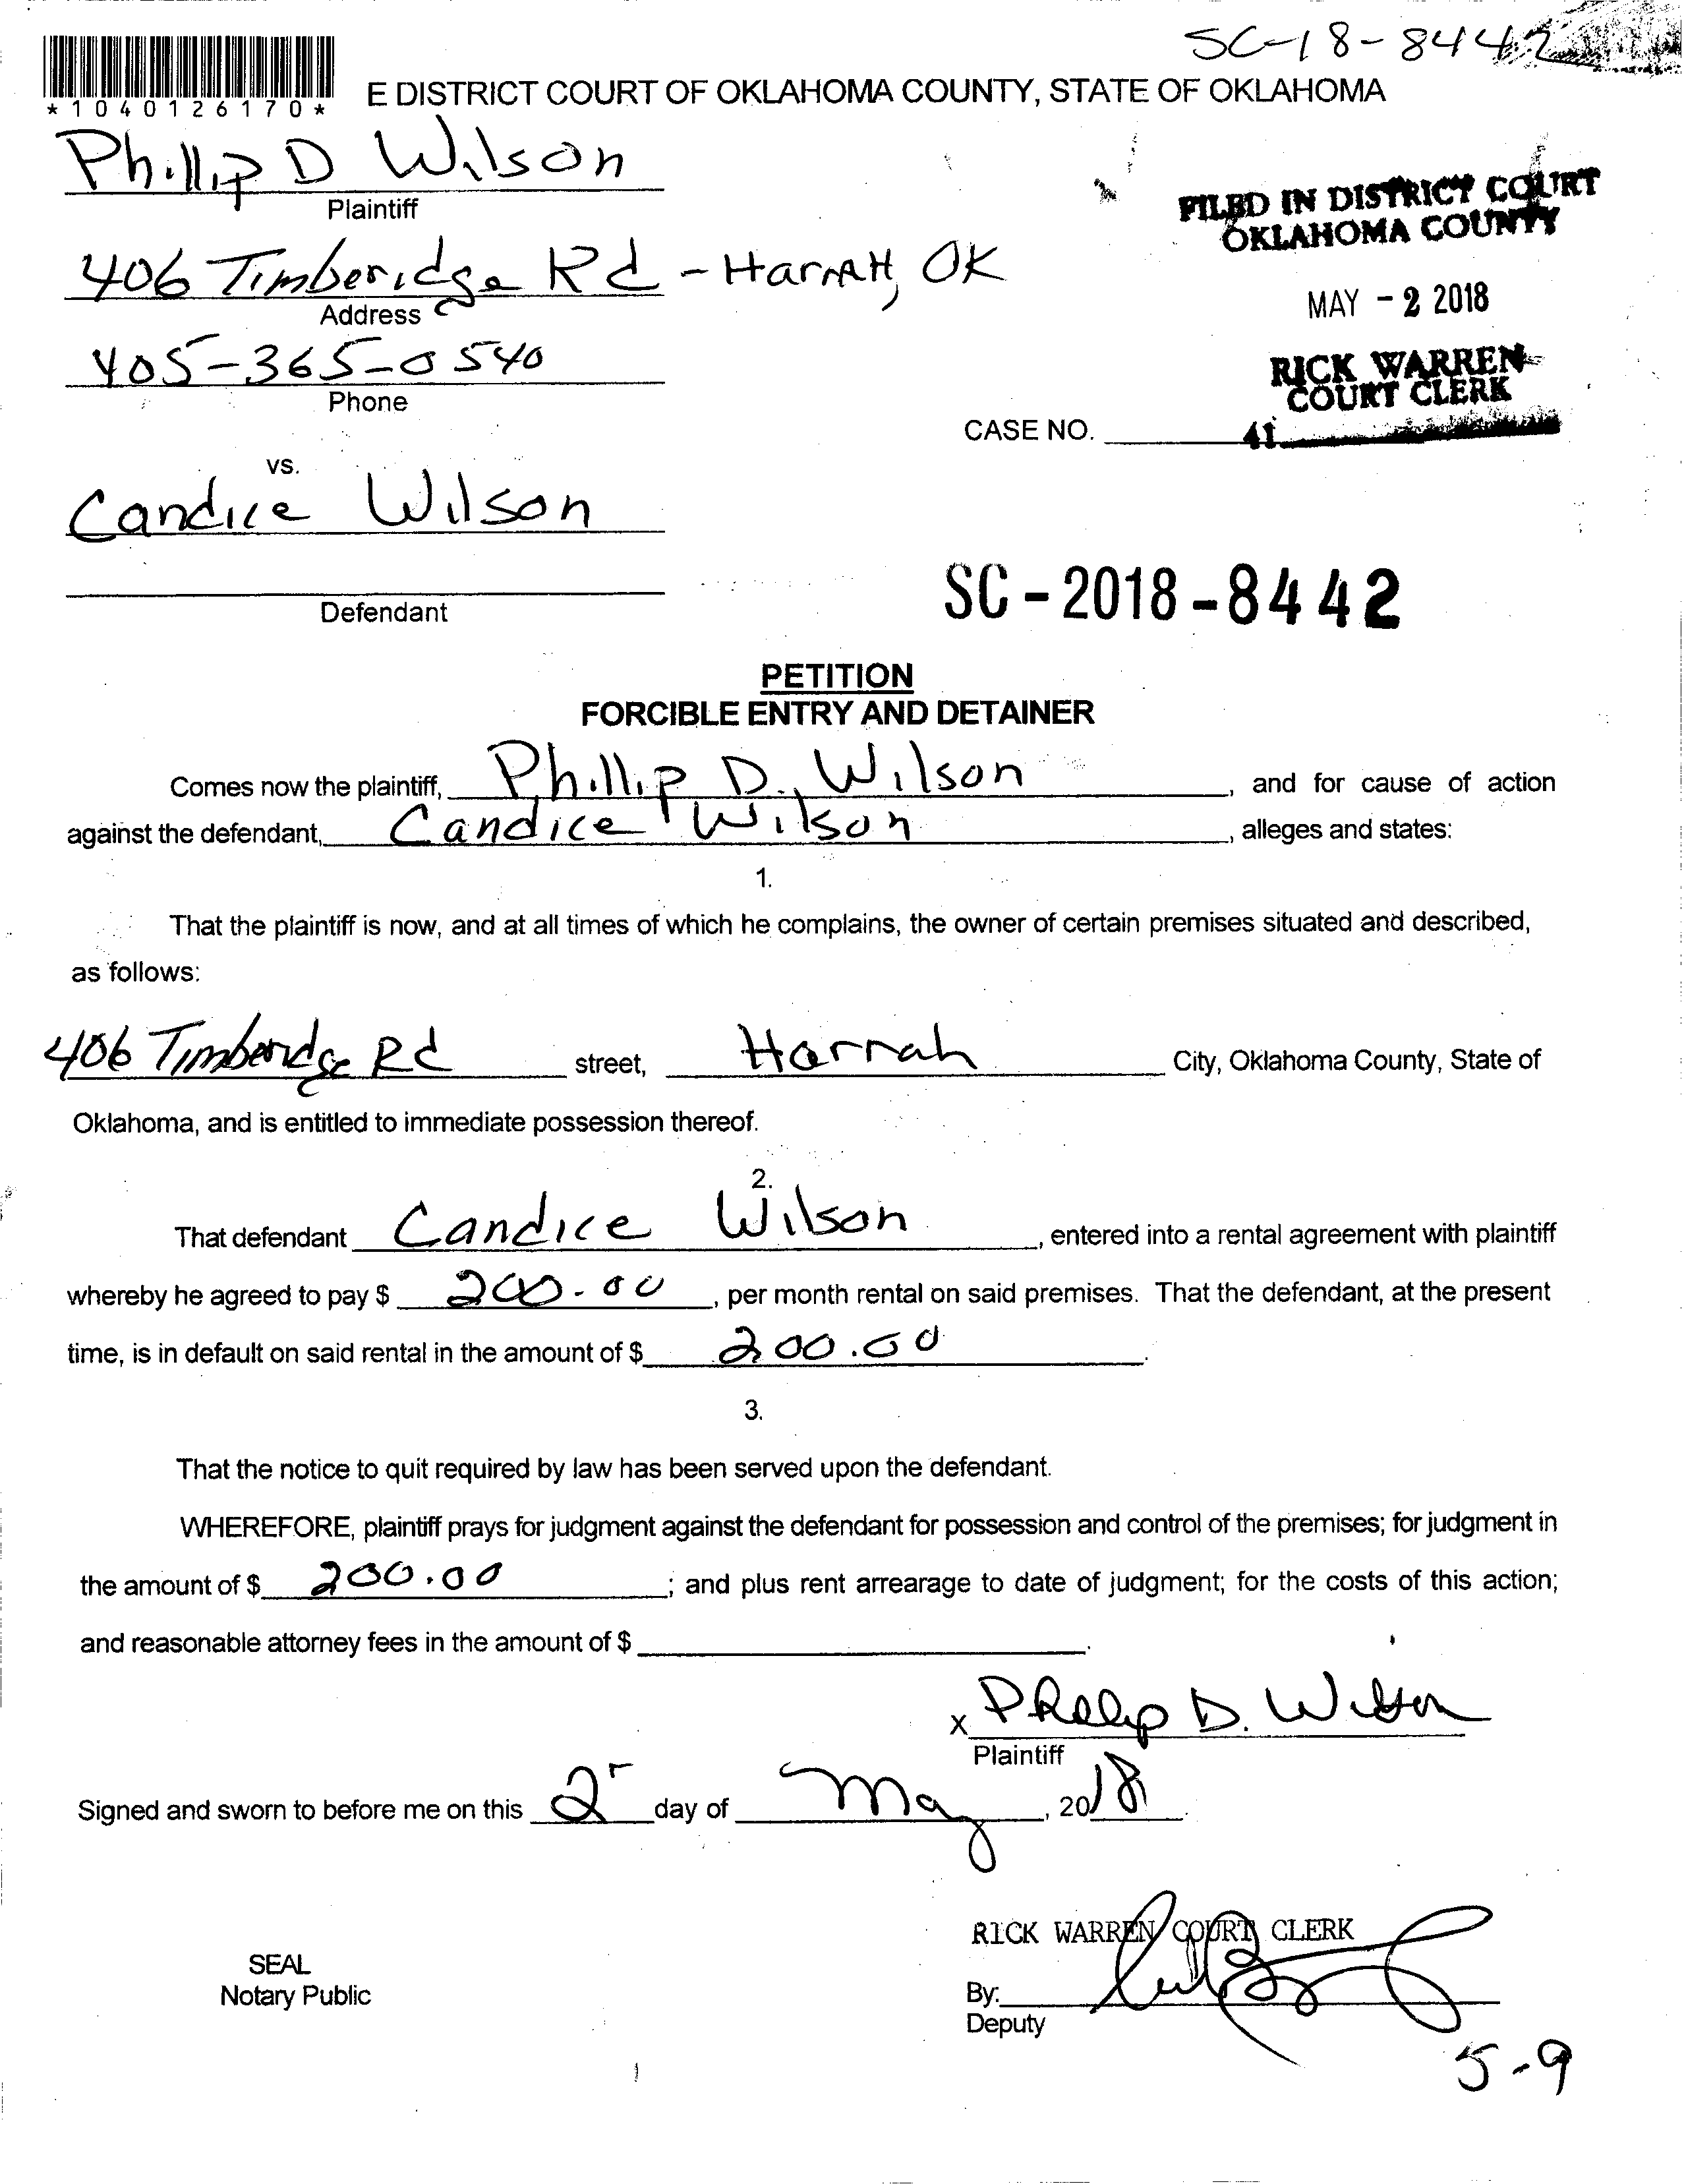 SC-18-8442
*1040126170*
E DISTRICT COURT OF OKLAHOMA COUNTY, STATE OF OKLAHOMA
Phillip D Wilson
Plaintiff
FILED IN DISTRICT COURT
OKLAHOMA COUNTY
406 Timberidge Rd - Harrah, OK
Address
MAY - 2 2018
405-365-0540
Phone
RICK WARREN
COURT CLERK
CASE NO.
41
vs.
Candice Wilson
Defendant
SC - 2018 - 8442
PETITION
FORCIBLE ENTRY AND DETAINER
Comes now the plaintiff, Phillip D. Wilson, and for cause of action
against the defendant, Candice Wilson, alleges and states:
1.
That the plaintiff is now, and at all times of which he complains, the owner of certain premises situated and described,
as follows:
406 Timberidge Rd street, Harrah City, Oklahoma County, State of
Oklahoma, and is entitled to immediate possession thereof.
2.
That defendant Candice Wilson, entered into a rental agreement with plaintiff
whereby he agreed to pay $ 200.00, per month rental on said premises. That the defendant, at the present
time, is in default on said rental in the amount of $ 200.00.
3.
That the notice to quit required by law has been served upon the defendant.
WHEREFORE, plaintiff prays for judgment against the defendant for possession and control of the premises; for judgment in
the amount of $ 200.00; and plus rent arrearage to date of judgment; for the costs of this action;
and reasonable attorney fees in the amount of $ .
X Phillip D. Wilson
Plaintiff
Signed and sworn to before me on this 2 day of May, 2018.
RICK WARREN COURT CLERK
SEAL
Notary Public
By:
Deputy
5-9